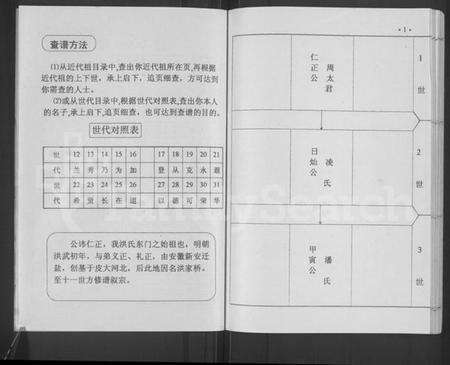 查谱方法
⑴从近代祖目录中,查出你近代祖所在页,再根据
近代祖的上下世，承上启下，追页细查，方可达到
你需查的人士。
⑵或从世代目录中,根据世代对照表,查出你本人
的名子,承上启下,追页细查，也可达到查谱的目的。
世代对照表
世 12 13 14 15 16 17 18 19 20 21
代 兰 秀 乃 为 加 登 从 克 永
世 22 23 24 25 26 27 28 29 30 31
代 希 贤 长 在 道 以 德 可 荣 华
公讳仁正，我洪氏东门之始祖也，明朝
洪武初年，与弟义正、礼正，由安徽新安迁
盐，创基于皮大河北，后此地因名洪家桥。
至十一世方修谱叙宗。
·1·
1世
周太君
仁正公
2世
凌氏
日灿公
3世
潘氏
甲寅公
FamilySearch